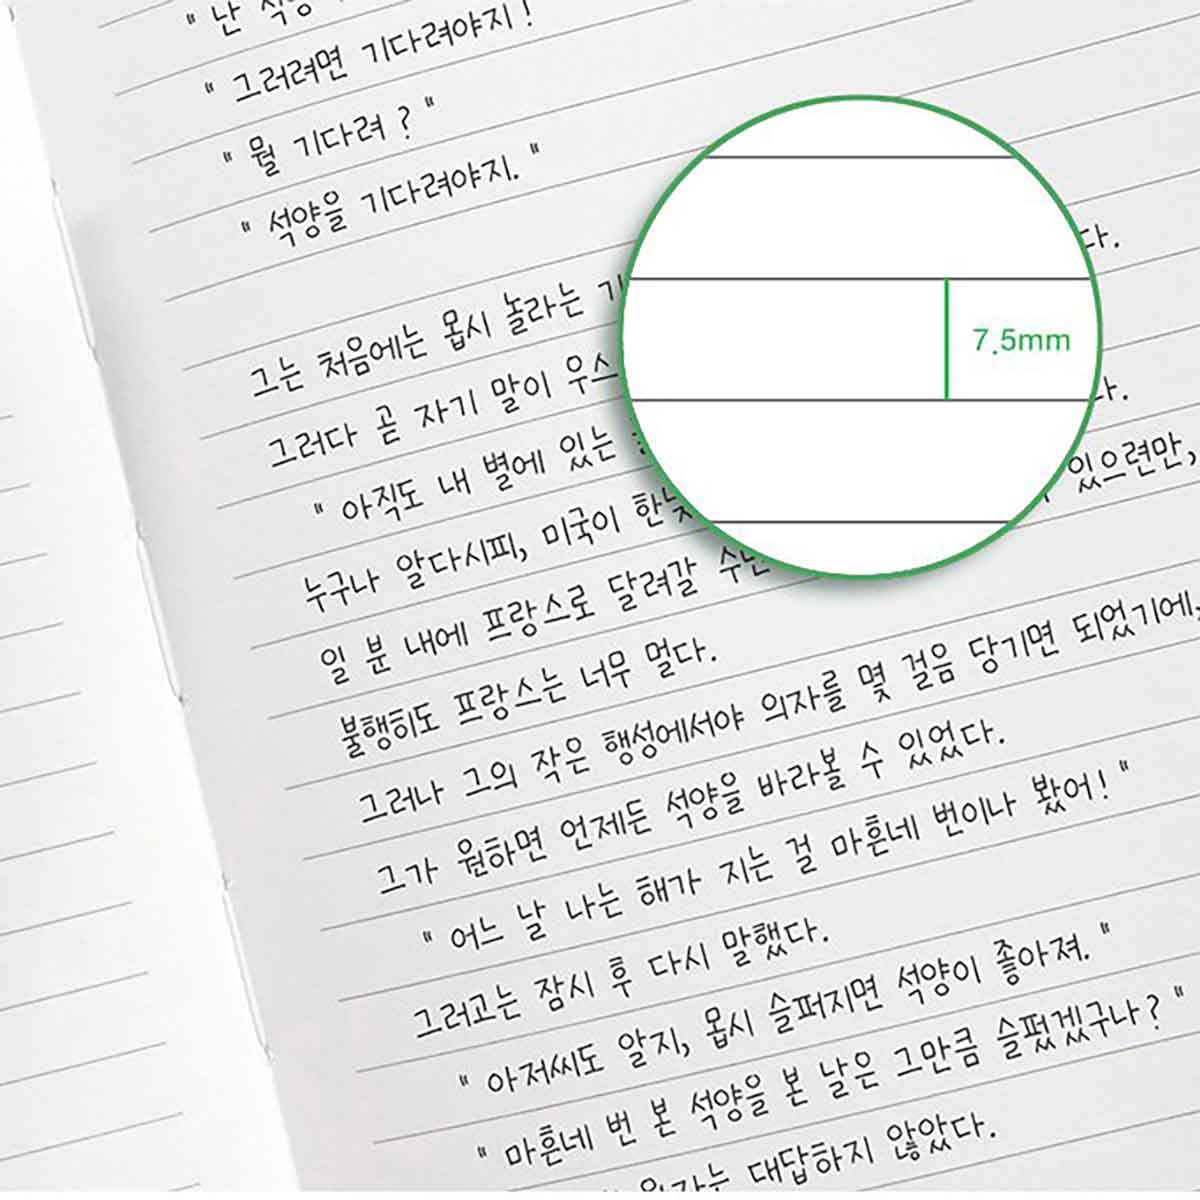 " 난 석양
" 그러려면 기다려야지!
" 뭘 기다려? "
" 석양을 기다려야지. "
그는 처음에는 몹시 놀라는 다.
그러다 곧 자기 말이
" 아직도 내 별에 있는 다.
누구나 알다시피, 미국이 있으련만,
일 분 내에 프랑스로 달려갈
불행히도 프랑스는 너무 멀다.
그러나 그의 작은 행성에서야 의자를 몇 걸음 당기면 되었기에,
그가 원하면 언제든 석양을 바라볼 수 있었다.
" 어느 날 나는 해가 지는 걸 마흔네 번이나 봤어! "
그러고는 잠시 후 다시 말했다.
" 아저씨도 알지, 몹시 슬퍼지면 석양이 좋아져. "
" 마흔네 번 본 석양을 본 날은 그만큼 슬펐겠구나? "
대답하지 않았다.
7.5mm